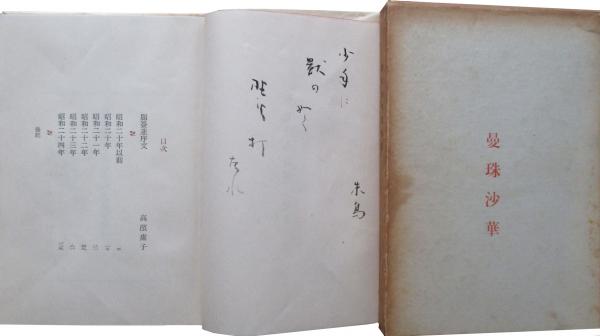 曼珠沙華
少年に
獣の如く
野火打たれ
朱鳥
目次
序文 高濱虚子
昭和二十年以前
昭和二十年
昭和二十一年
昭和二十二年
昭和二十三年
昭和二十四年
後記